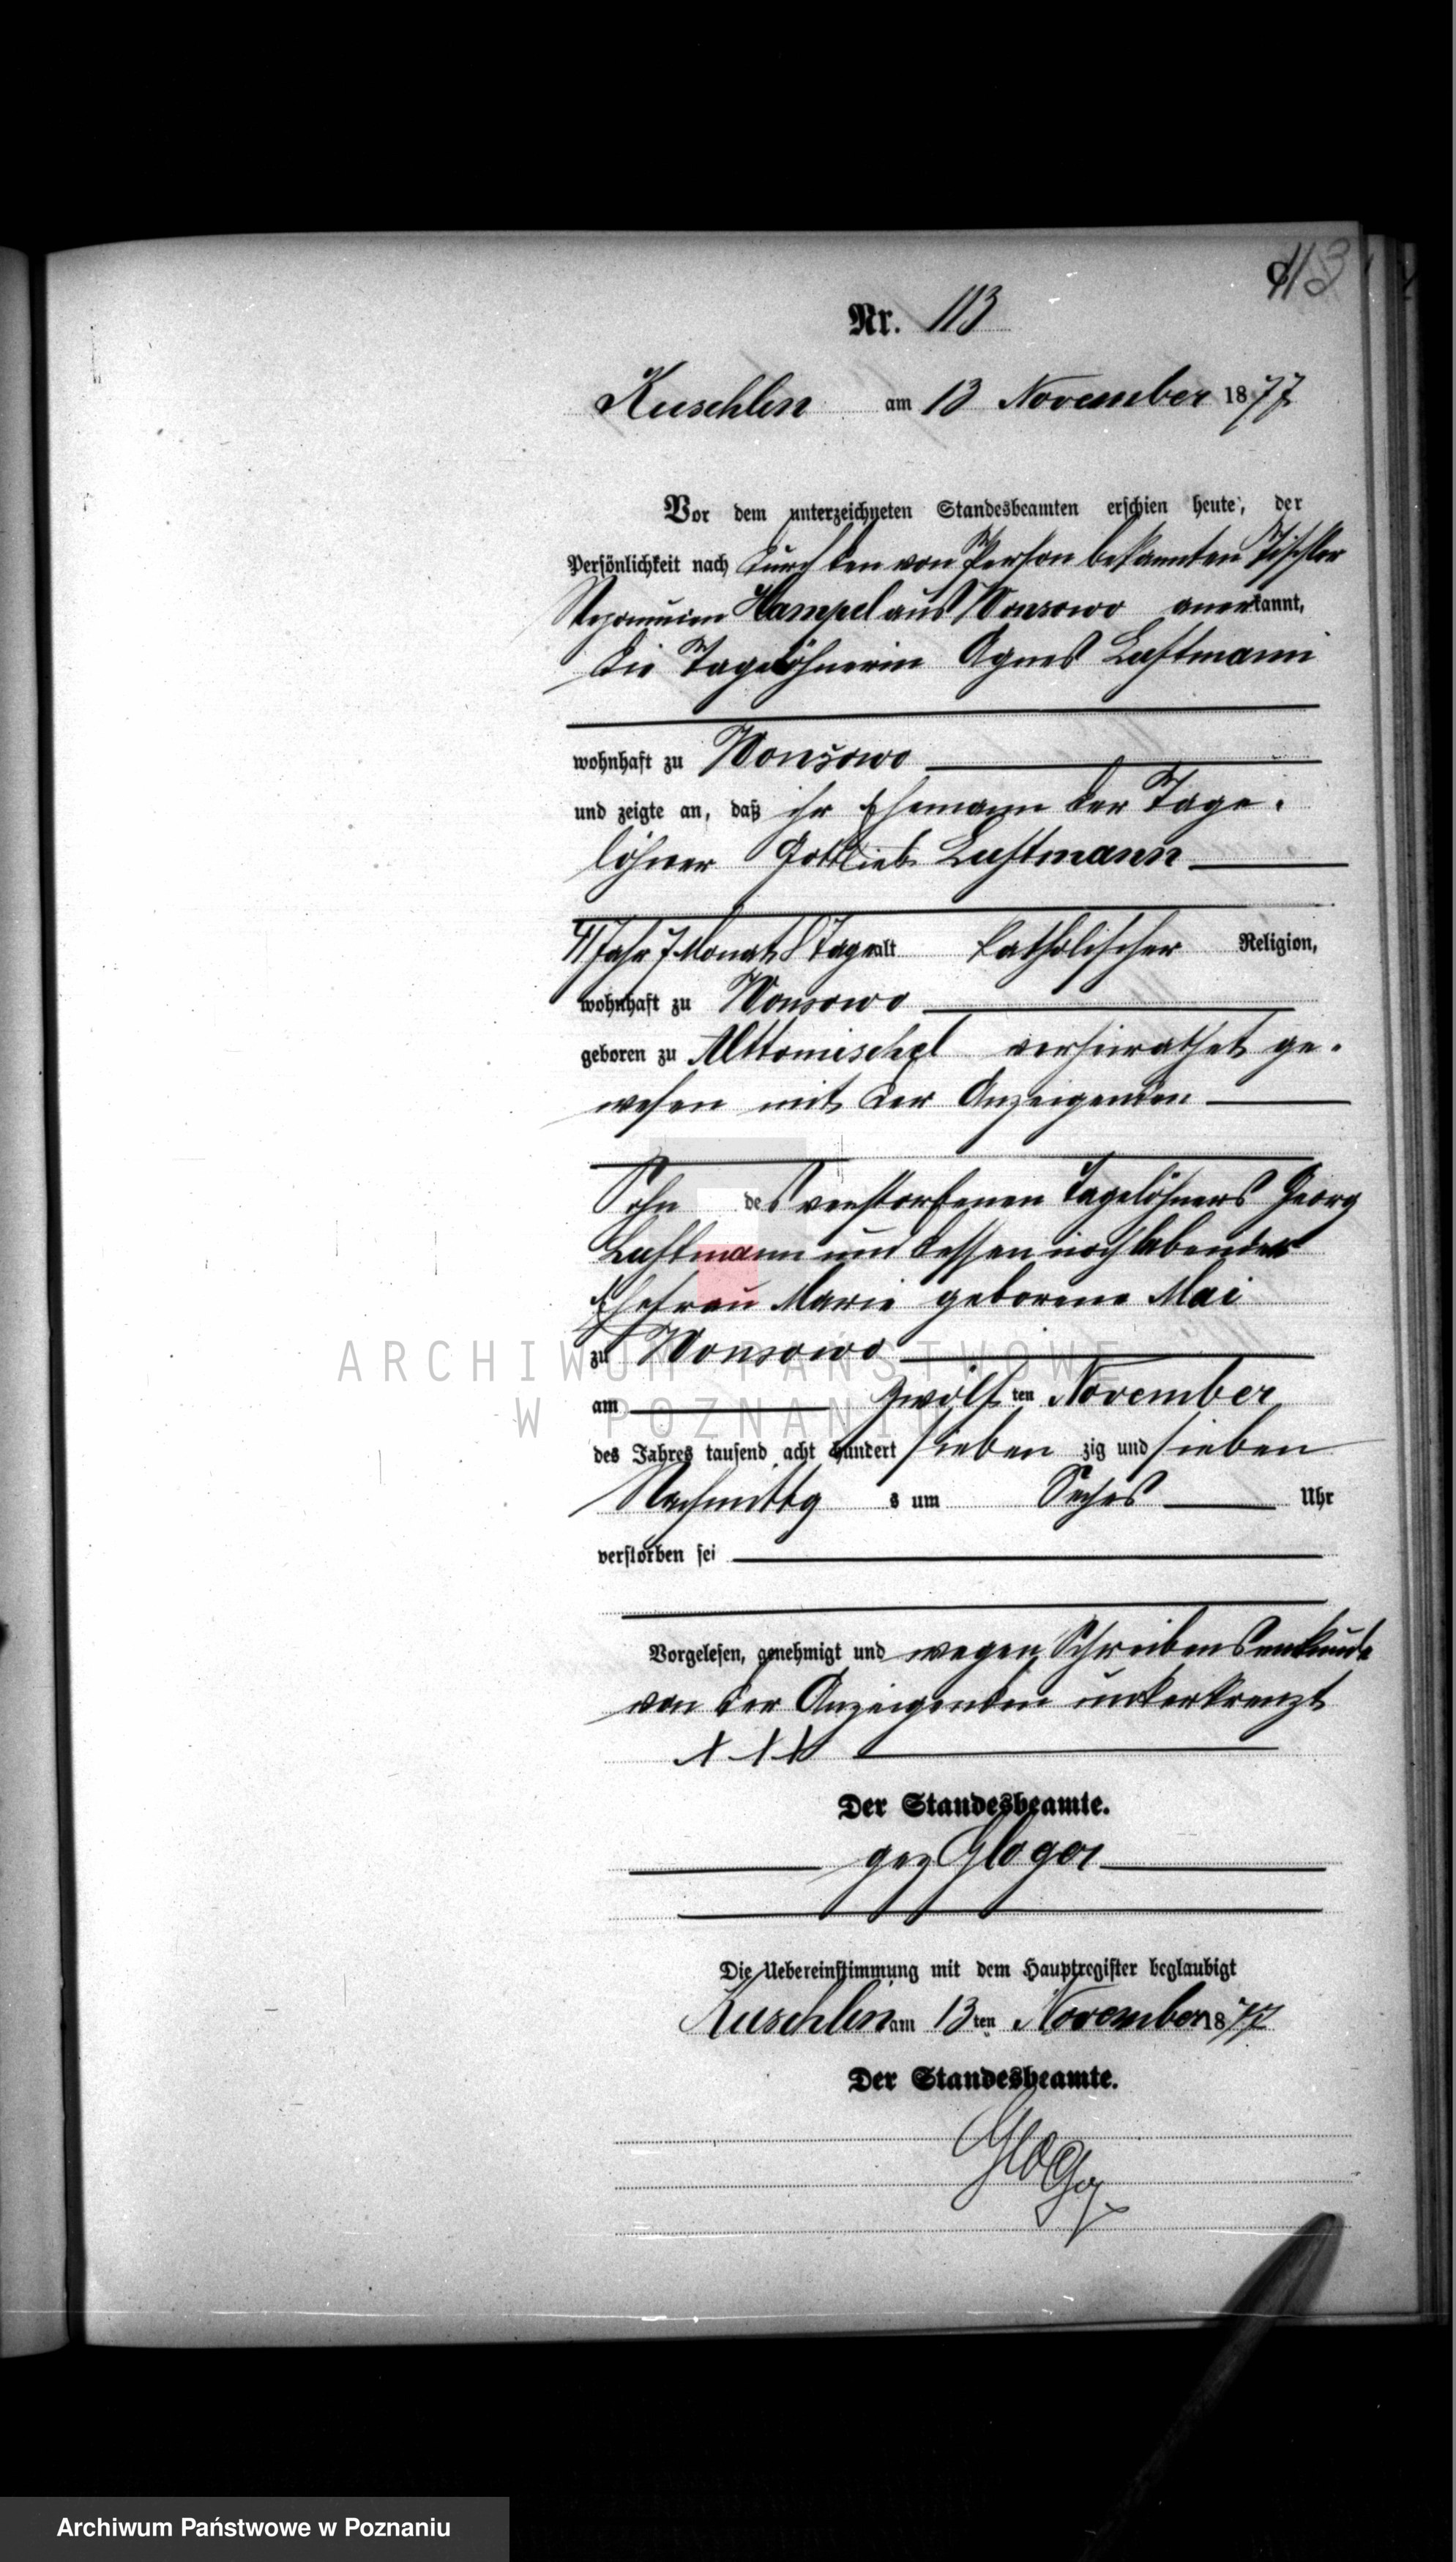 113
Nr. 113
Kuschlin am 13 November 1877
Vor dem unterzeichneten Standesbeamten erschien heute, der
Persönlichkeit nach durch den von Person bekannten Tischler
Hampel aus Wonsowo anerkannt,
die Tagelöhnerin Agnes Luftmann
wohnhaft zu Wonsowo
und zeigte an, daß ihr Ehemann der Tage-
löhner Gottlieb Luftmann
41 Jahr 7 Monat 8 Tage alt katholischer Religion,
wohnhaft zu Wonsowo
geboren zu Alttomischel verheirathet ge-
wesen mit der Anzeigenden
Sohn des verstorbenen Tagelöhners Georg
Luftmann und dessen noch lebenden
Ehefrau Marie geborene Mai
zu Wonsowo
am zwölften November
des Jahres tausend acht hundert siebenzig und sieben
Nachmittgs um Sechs Uhr
verstorben sei
Vorgelesen, genehmigt und wegen Schreibensunkunde
von der Anzeigenden unterkreuzt
XXX
Der Standesbeamte.
gez Gloger
Die Uebereinstimmung mit dem Hauptregister beglaubigt
Kuschlin am 13ten November 1877
Der Standesbeamte.
Gloger
ARCHIWUM PAŃSTWOWE
W POZNANIU
Archiwum Państwowe w Poznaniu